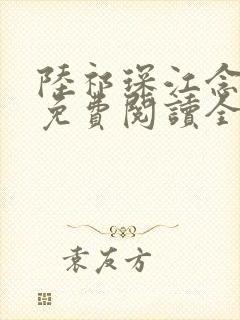 陸祁琛江念
免費閱讀全
袁友方